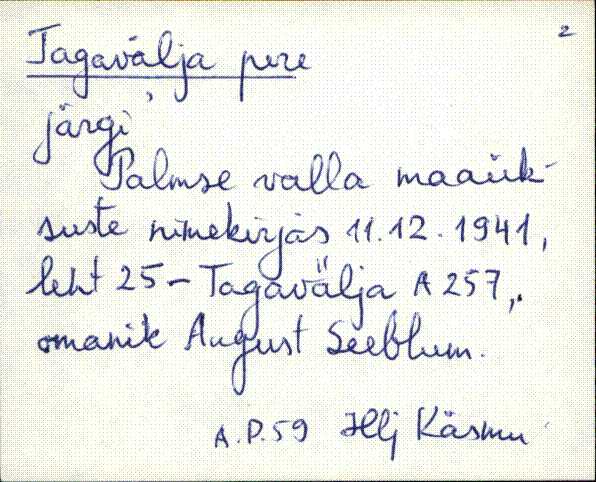 2
Tagavälja pere
järgi
Palmse valla maaük-
suste nimekirjas 11.12.1941,
leht 25 - Tagavälja A 257,
omanik August Seeblum.
A.P.59 Hlj Käsmu